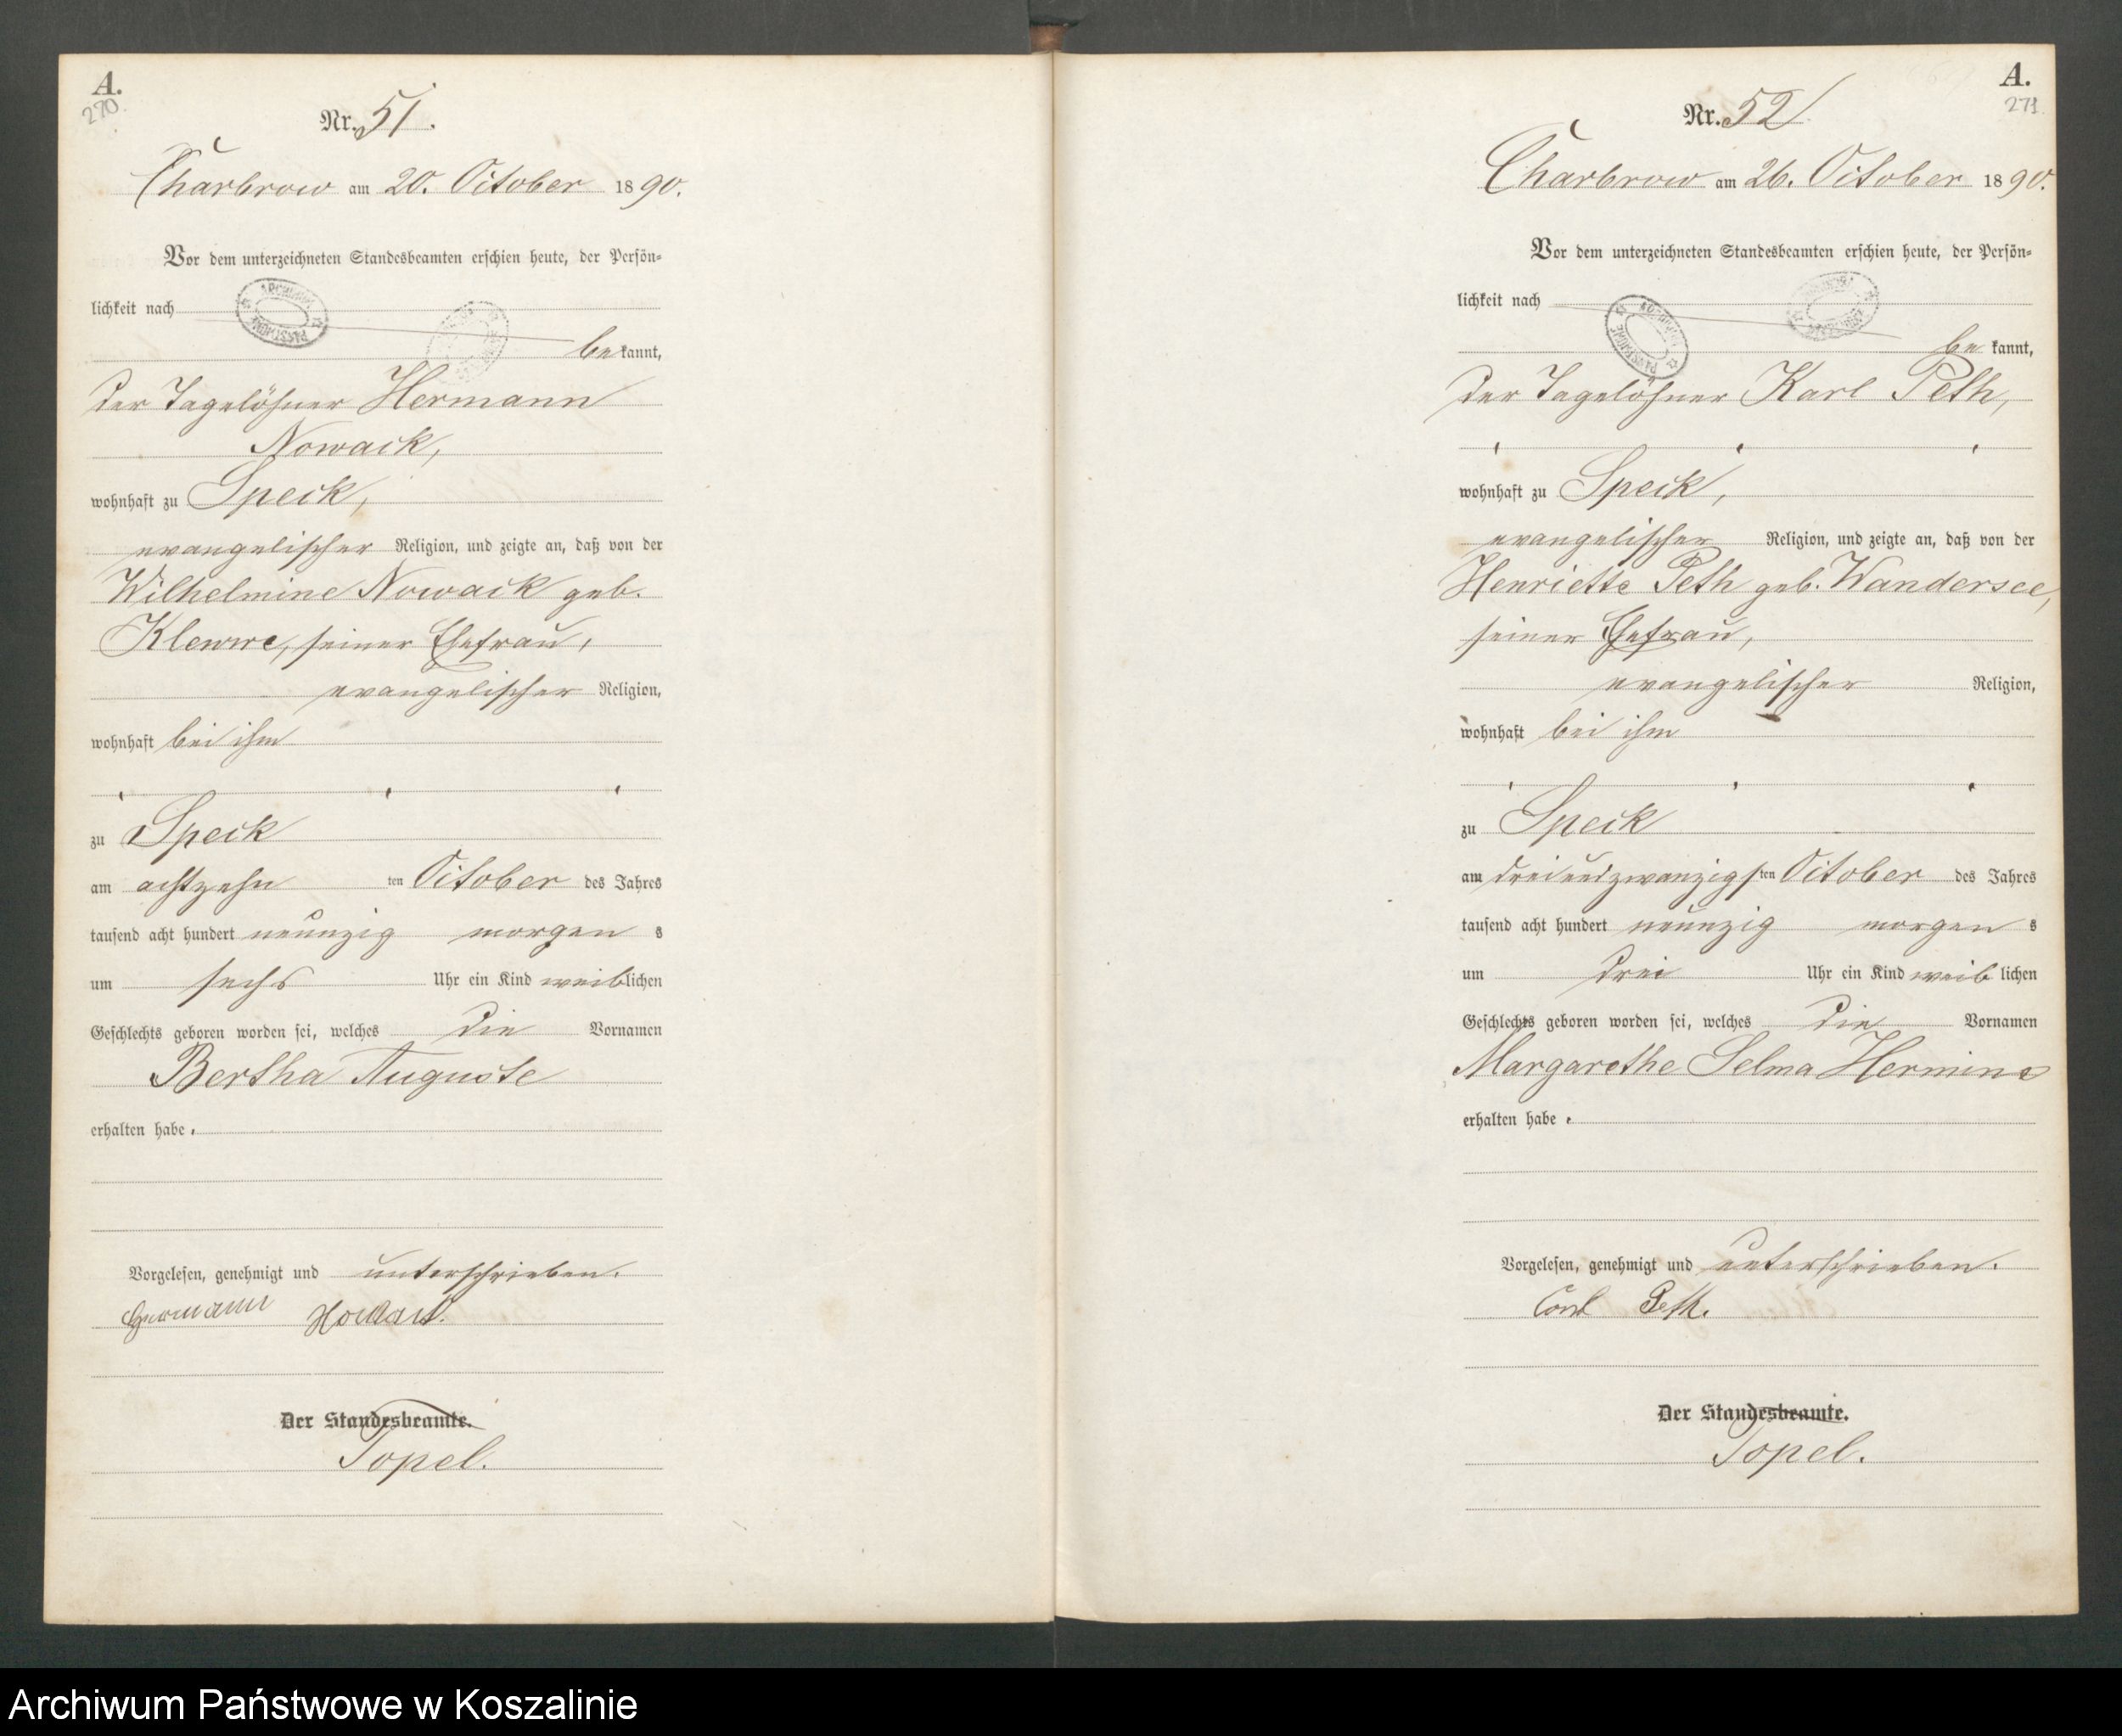 A.
270.
Nr. 51.
Charbrow am 20. October 1890.
Vor dem unterzeichneten Standesbeamten erschien heute, der Persön-
lichkeit nach
bekannt,
der Tagelöhner Hermann
Nowack,
wohnhaft zu Speck,
evangelischer Religion, und zeigte an, daß von der
Wilhelmine Nowack geb.
Klewwe, seiner Ehefrau,
evangelischer Religion,
wohnhaft bei ihm
zu Speck
am achtzehn ten October des Jahres
tausend acht hundert neunzig morgen s
um sechs Uhr ein Kind weiblichen
Geschlechts geboren worden sei, welches die Vornamen
Bertha Auguste
erhalten habe.
Vorgelesen, genehmigt und unterschrieben.
Hermann Nowack.
Der Standesbeamte.
Topel.
A.
271.
Nr. 52.
Charbrow am 26. October 1890.
Vor dem unterzeichneten Standesbeamten erschien heute, der Persön-
lichkeit nach
be kannt,
der Tagelöhner Karl Peth,
wohnhaft zu Speck,
evangelischer Religion, und zeigte an, daß von der
Henriette Peth geb. Wandersee,
seiner Ehefrau,
evangelischer Religion,
wohnhaft bei ihm
zu Speck
am dreiundzwanzigsten October des Jahres
tausend acht hundert neunzig morgen s
um drei Uhr ein Kind weib lichen
Geschlechts geboren worden sei, welches die Vornamen
Margarethe Selma Hermine
erhalten habe.
Vorgelesen, genehmigt und unterschrieben.
Carl Peth.
Der Standesbeamte.
Topel.
Archiwum Państwowe w Koszalinie